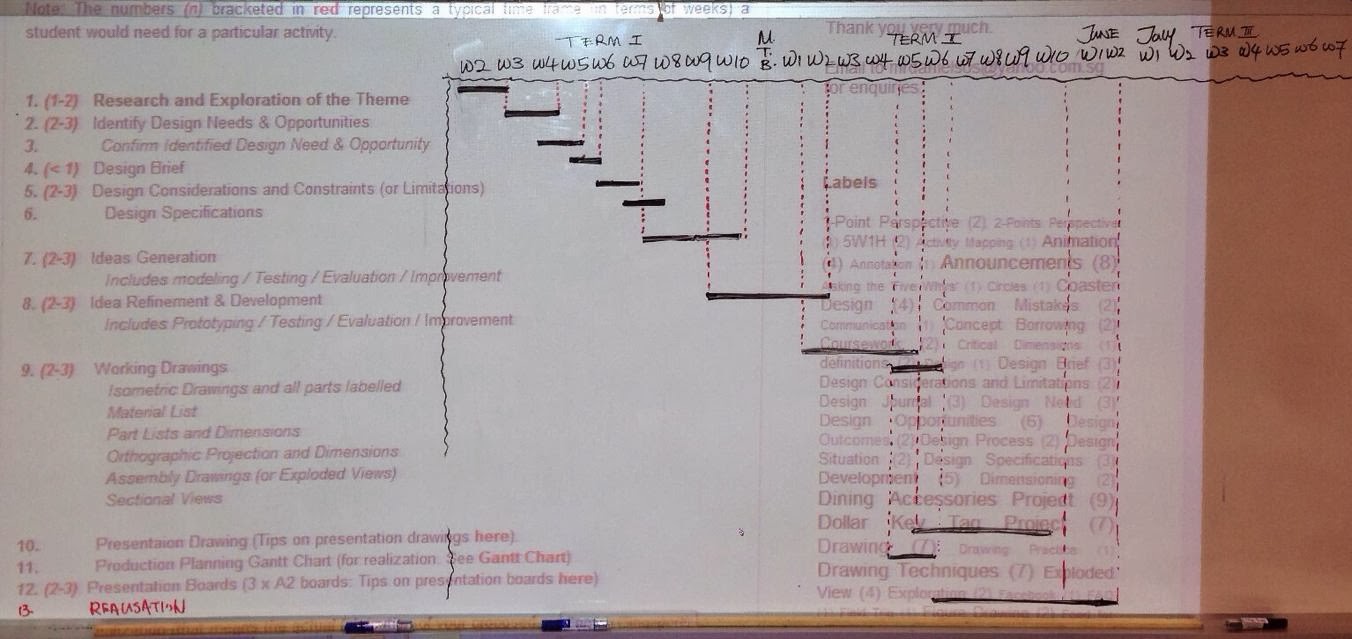 Note: The numbers (n) bracketed in red represents a typical time frame (in terms of weeks) a
student would need for a particular activity.
Thank you very much.
Email to mrdanielsus@yahoo.com.sg
for enquiries
TERM I M.T.B. TERM II JUNE July TERM III
W2 W3 W4 W5 W6 W7 W8 W9 W10 W1 W2 W3 W4 W5 W6 W7 W8 W9 W10 W1 W2 W1 W2 W3 W4 W5 W6 W7
1. (1-2) Research and Exploration of the Theme
2. (2-3) Identify Design Needs & Opportunities
3. Confirm Identified Design Need & Opportunity
4. (< 1) Design Brief
5. (2-3) Design Considerations and Constraints (or Limitations)
6. Design Specifications
7. (2-3) Ideas Generation
Includes modeling / Testing / Evaluation / Improvement
8. (2-3) Idea Refinement & Development
Includes Prototyping / Testing / Evaluation / Improvement
9. (2-3) Working Drawings
Isometric Drawings and all parts labelled
Material List
Part Lists and Dimensions
Orthographic Projection and Dimensions
Assembly Drawings (or Exploded Views)
Sectional Views
10. Presentaion Drawing (Tips on presentation drawings here)
11. Production Planning Gantt Chart (for realization. See Gantt Chart)
12. (2-3) Presentation Boards (3 x A2 boards: Tips on presentation boards here)
13- REALISATION
Labels
1-Point Perspective (2) 2-Points Perspective
5W1H (2) Activity Mapping (1) Animation
(4) Annotation (1) Announcements (8)
Asking the 'Five Whys' (1) Circles (1) Coaster
Design (4) Common Mistakes (2)
Communication (1) Concept Borrowing (2)
Coursework (2) Critical Dimensions (1)
definitions (2) Design (1) Design Brief (3)
Design Considerations and Limitations (2)
Design Journal (3) Design Need (3)
Design Opportunities (6) Design
Outcomes (2) Design Process (2) Design
Situation (2) Design Specifications (3)
Development (5) Dimensioning (2)
Dining Accessories Project (9)
Dollar Key Tag Project (7)
Drawing (7) Drawing Practice (1)
Drawing Techniques (7) Exploded
View (4) Exploration (2) Facebook (1) FAQ